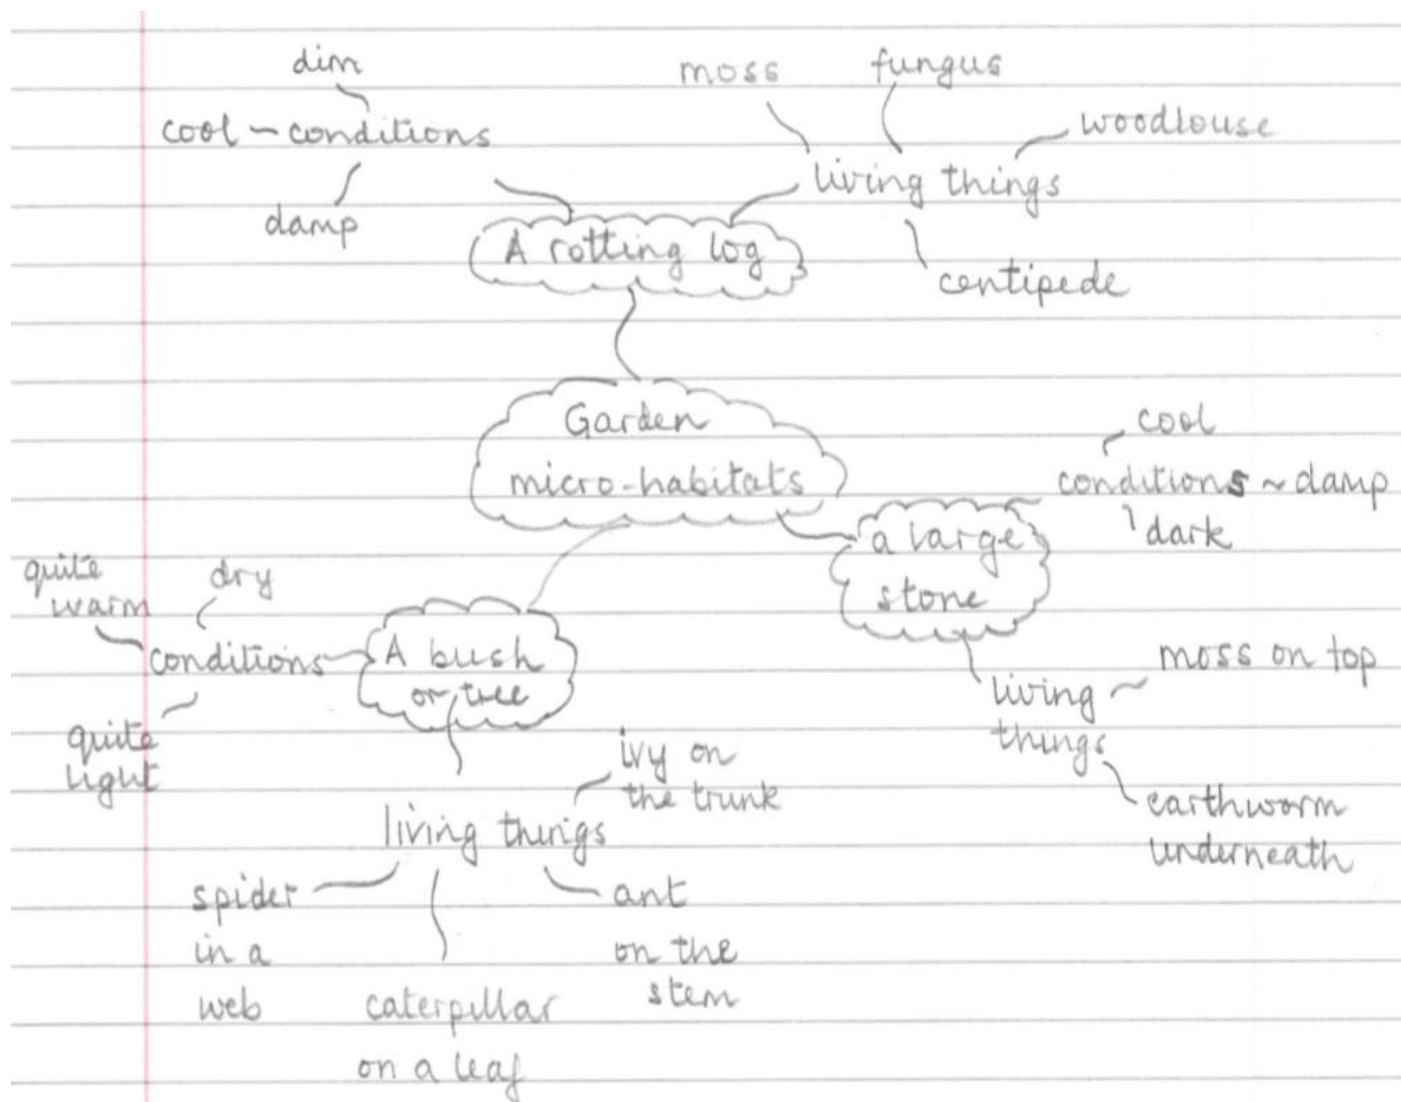 dim
cool - conditions
damp
moss
fungus
woodlouse
living things
centipede
A rotting log
Garden
micro-habitats
cool
conditions ~ damp
dark
a large
stone
moss on top
living
things
earthworm
underneath
quite
warm
dry
conditions
quite
light
A bush
or tree
ivy on
the trunk
living things
spider
in a
web
caterpillar
on a leaf
ant
on the
stem